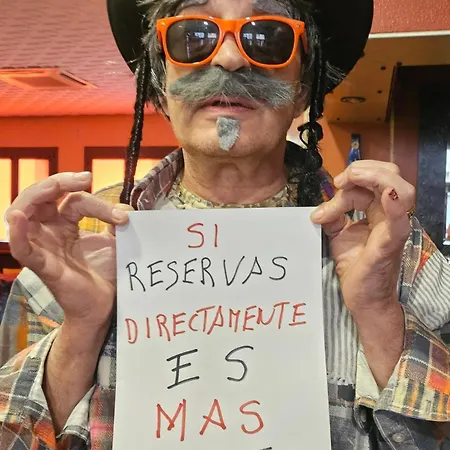 SI
RESERVAS
DIRECTAMENTE
ES
MAS